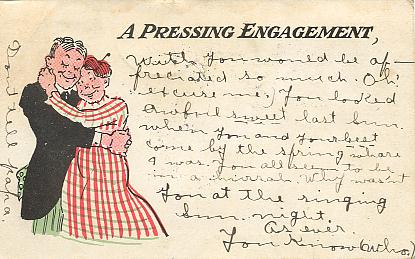 A PRESSING ENGAGEMENT,
with you would be ap-
preciated so much. Oh!
excuse me.) You looked
awful sweet last Sun.
when you and your best
come by the spring where
I was. You all seem to be
in a hurrah. Why wasn't
You at the singing
Sun. night.
As ever.
You Know (who.)
Don't tell papa.